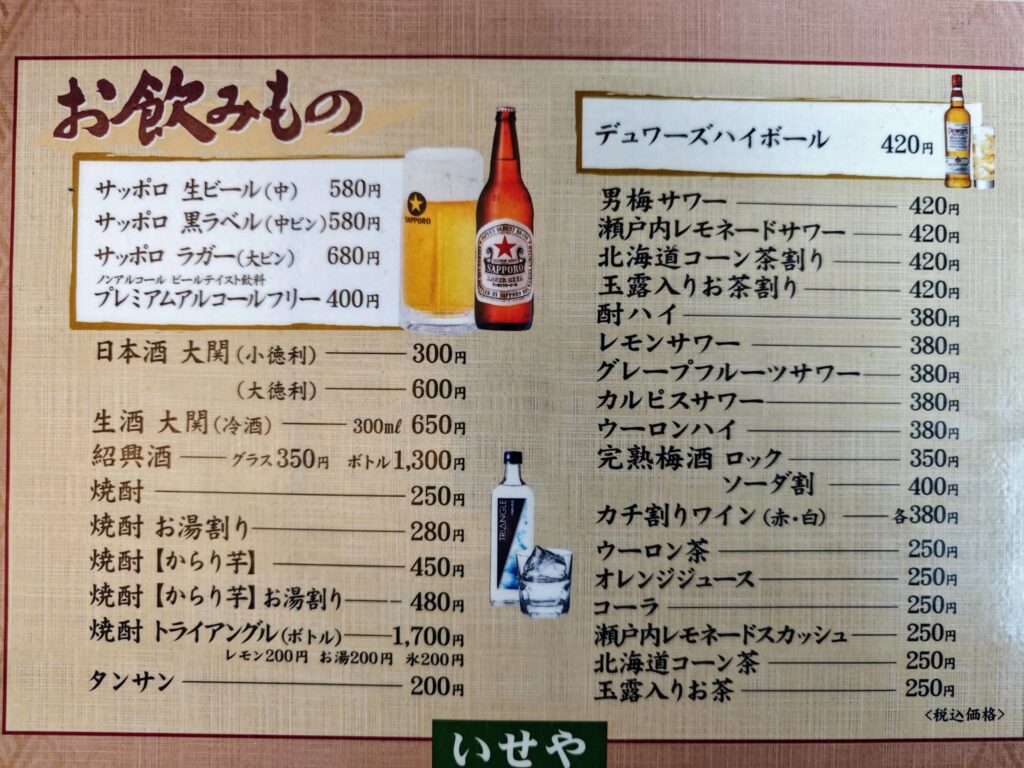 お飲みもの
サッポロ 生ビール(中) 580円
サッポロ 黒ラベル(中ビン)580円
サッポロ ラガー(大ビン) 680円
ノンアルコール ビールテイスト飲料
プレミアムアルコールフリー 400円
SAPPORO
SAPPORO
LAGER BEER
日本酒 大関(小徳利) 300円
(大徳利) 600円
生酒 大関(冷酒) 300ml 650円
紹興酒 グラス350円 ボトル1,300円
焼酎 250円
焼酎 お湯割り 280円
焼酎【からり芋】 450円
焼酎【からり芋】お湯割り 480円
焼酎 トライアングル(ボトル) 1,700円
レモン200円 お湯200円 氷200円
タンサン 200円
TRIANGLE
デュワーズハイボール 420円
男梅サワー 420円
瀬戸内レモネードサワー 420円
北海道コーン茶割り 420円
玉露入りお茶割り 420円
酎ハイ 380円
レモンサワー 380円
グレープフルーツサワー 380円
カルピスサワー 380円
ウーロンハイ 380円
完熟梅酒 ロック 350円
ソーダ割 400円
カチ割りワイン(赤・白) 各380円
ウーロン茶 250円
オレンジジュース 250円
コーラ 250円
瀬戸内レモネードスカッシュ 250円
北海道コーン茶 250円
玉露入りお茶 250円
<税込価格>
いせや